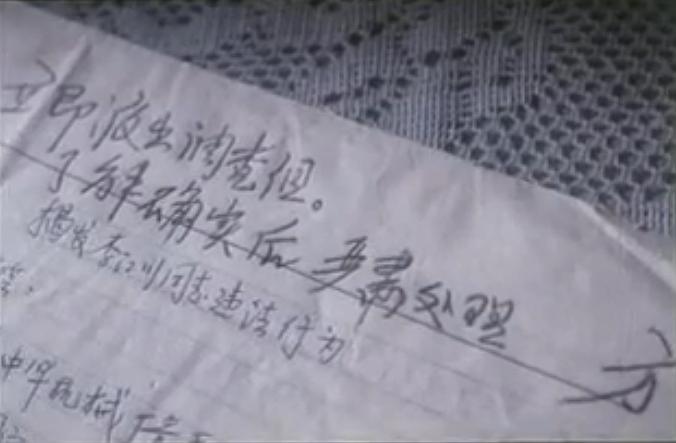 立即派出调查组。
了解确实后 严肃处理
方
揭发李江川同志违法行为
中旱机械厂